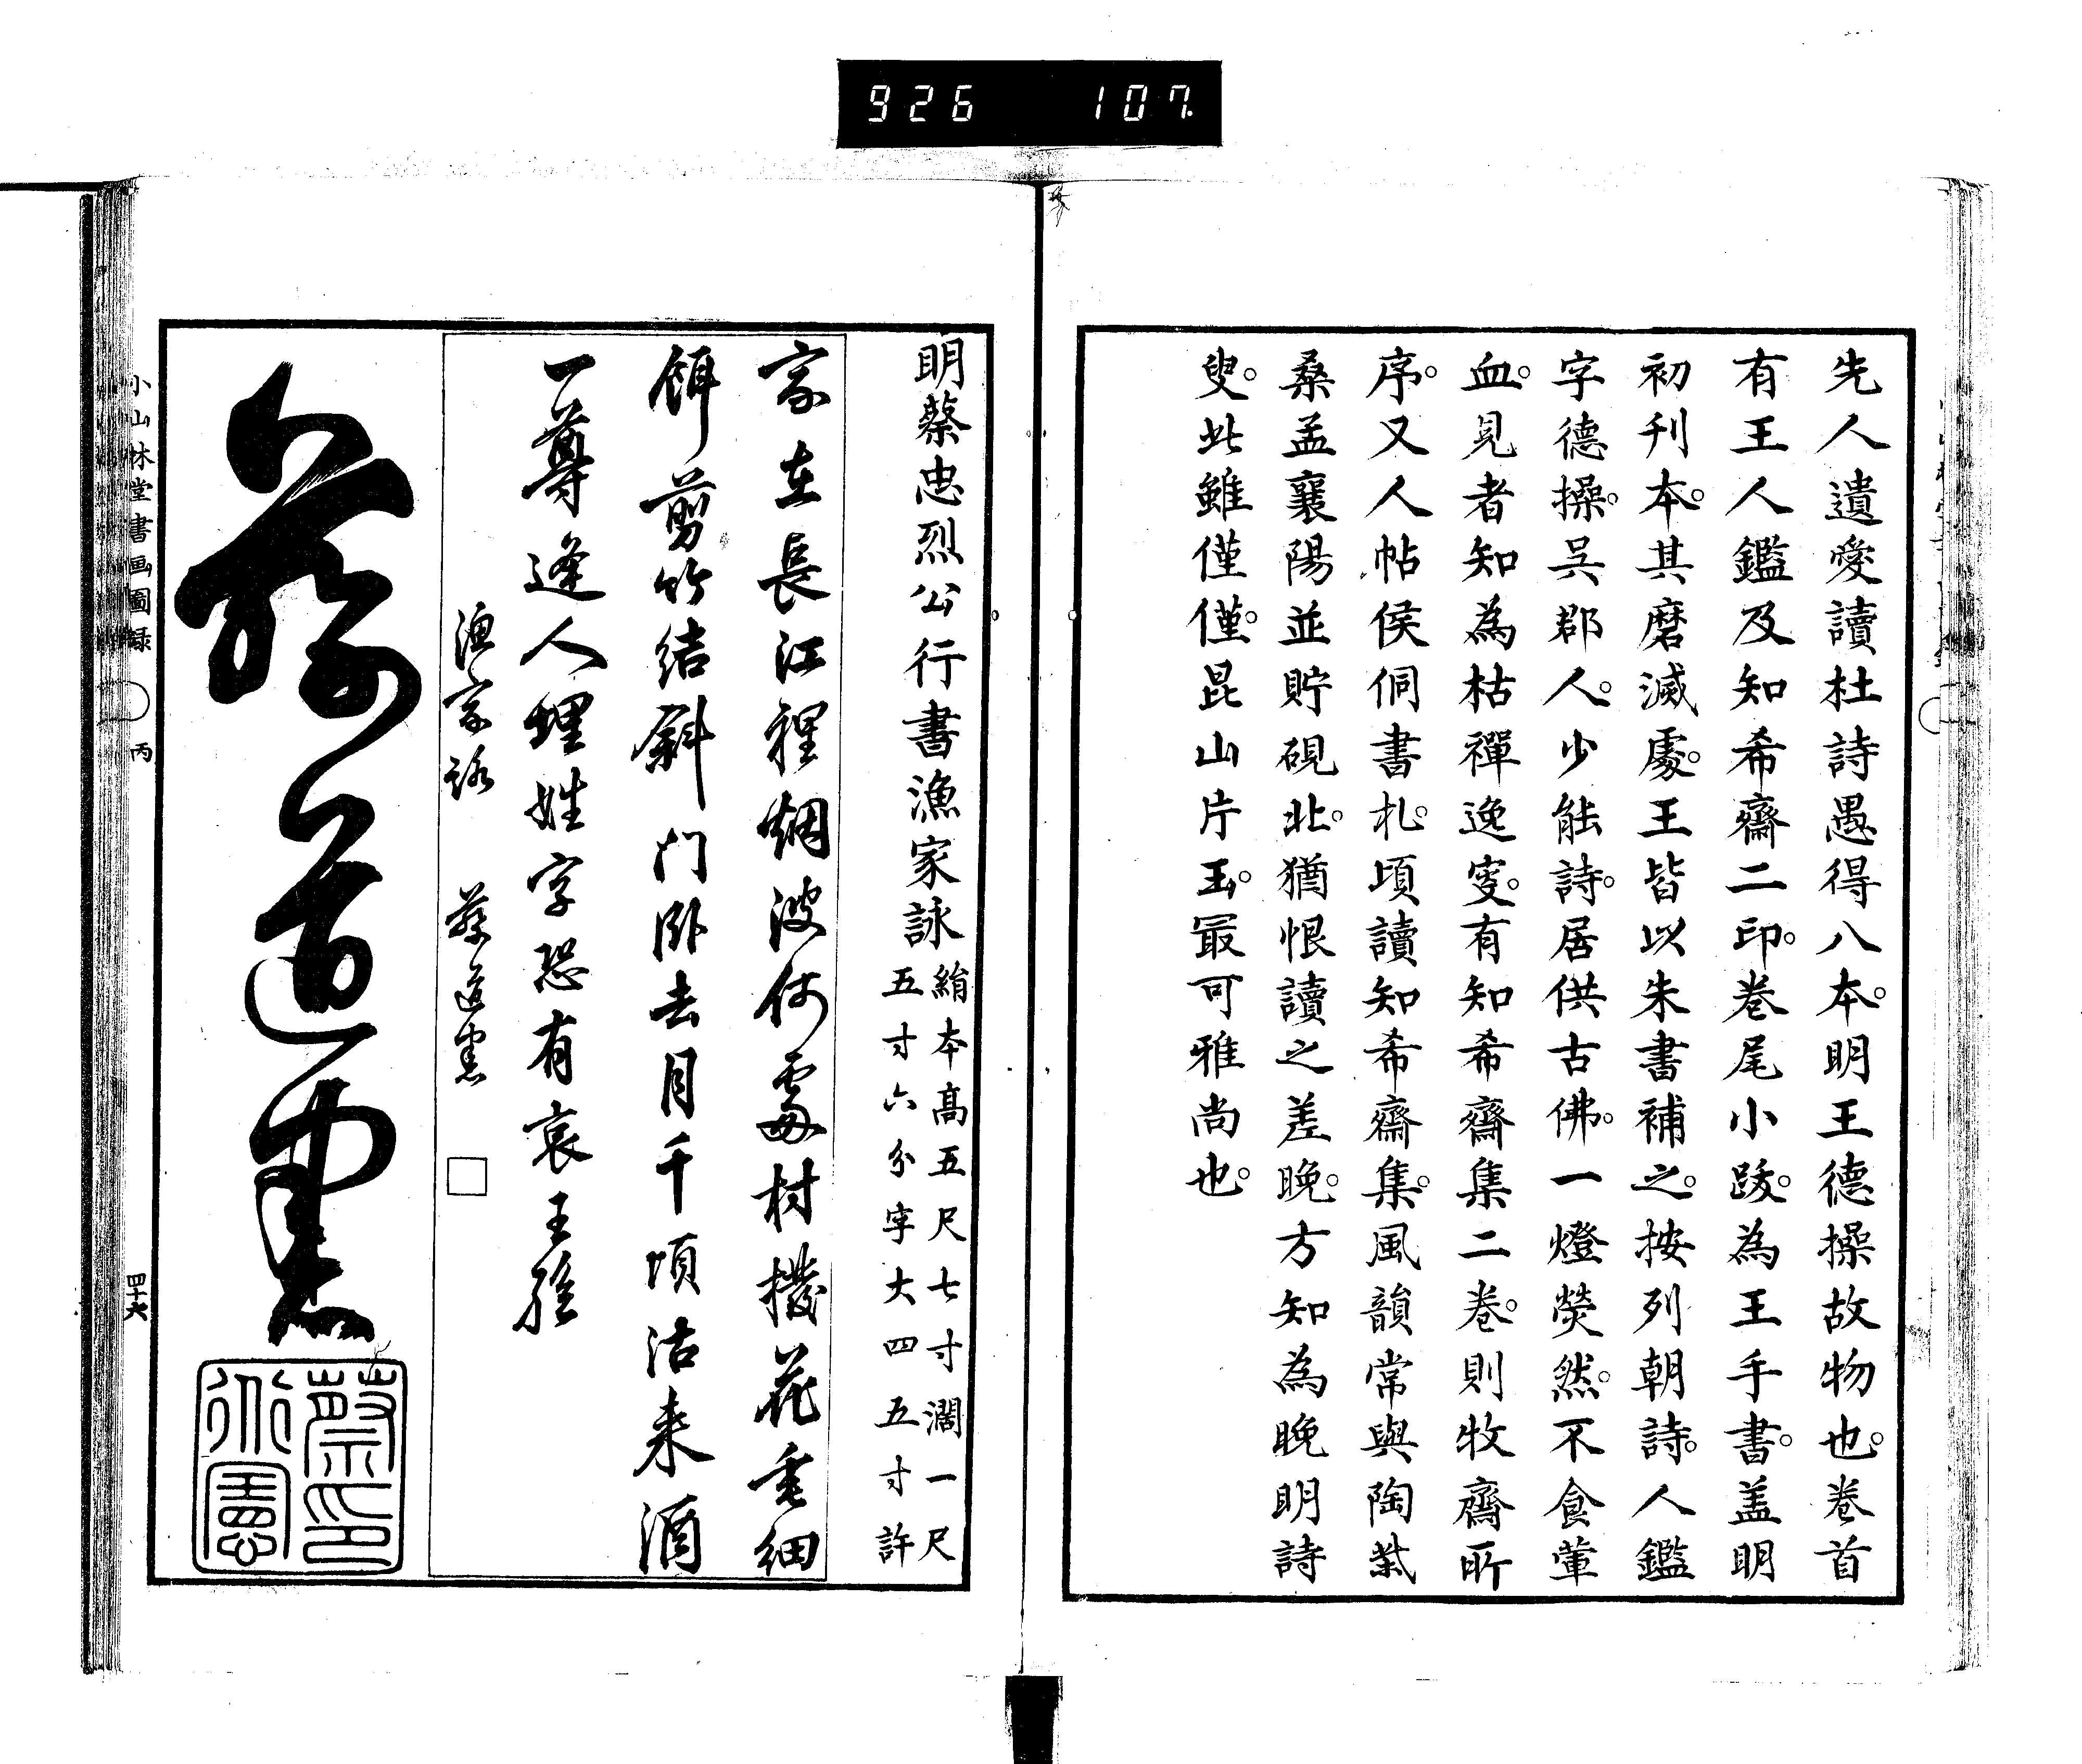 926 107
先人遺愛讀杜詩愚得八本。明王德操故物也。巻首
有王人鑑及知希齋二印。巻尾小跋。為王手書。盖明
初刊本。其磨滅處。王皆以朱書補之。按列朝詩。人鑑
字德操。呉郡人。少能詩。居供古佛。一燈熒然。不食葷
血。見者知為枯禪逸叟。有知希齋集二巻。則牧齋所
序。又人帖侯侗書札。頃讀知希齋集。風韻常與陶
桑孟襄陽並貯硯北。猶恨讀之差晚。方知為晚明詩
叟。此雖僅僅。昆山片玉。最可雅尚也。
明蔡忠烈公行書漁家詠
絹本高五尺七寸濶一尺
五寸六分字大四五寸許
家在長江裡烟波何處村機花垂細
餌剪竹結斜门卧去月千頃沽来酒
一尊逢人埋姓字恐有哀王孫
漁家詠 蔡道憲
蔡道憲
蔡印道憲
小山林堂書画圖録 丙 四十六